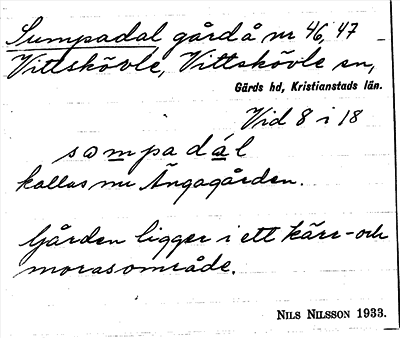 Sumpadal gård å nr 46, 47
Vittskövle, Vittskövle sn,
Gärds hd, Kristianstads län.
Vid 8 i 18
sampadál
kallas nu Ängagården.
Gården ligger i ett kärr- och
morasområde.
NILS NILSSON 1933.